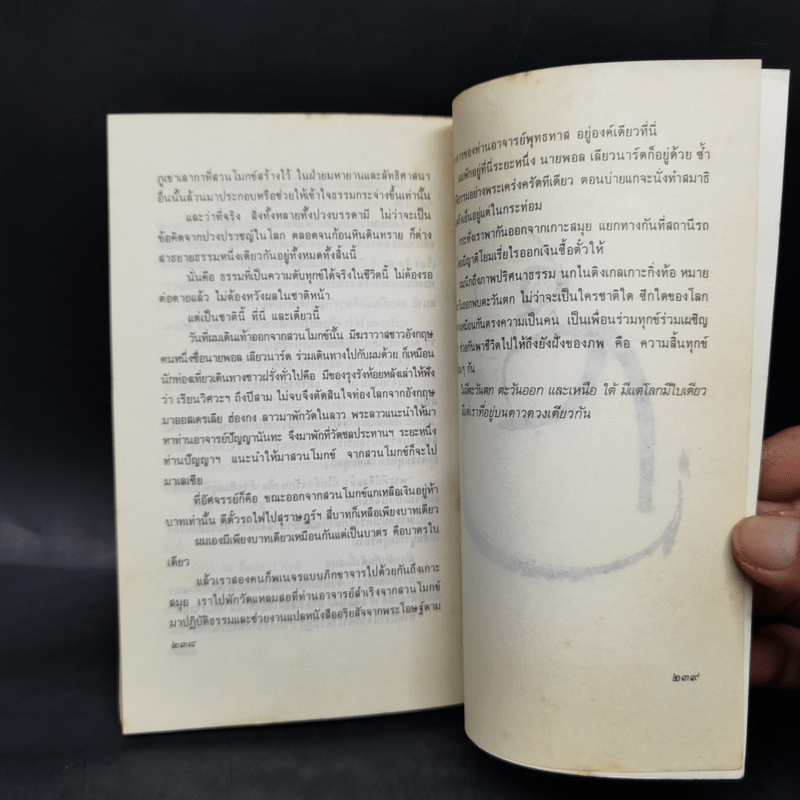 ภูเขาเลากาที่สวนโมกข์สร้างไว้ ในฝ่ายมหายานและลัทธิศาสนา
อื่นนั้นล้วนมาประกอบหรือช่วยให้เข้าใจธรรมกระจ่างขึ้นเท่านั้น
และว่าที่จริง สิ่งทั้งหลายทั้งปวงบรรดามี ไม่ว่าจะเป็น
ข้อคิดจากปวงปราชญ์ในโลก ตลอดจนก้อนหินดินทราย ก็ต่าง
สาธยายธรรมหนึ่งเดียวกันอยู่ทั้งหมดทั้งสิ้นนี้
นั่นคือ ธรรมที่เป็นความดับทุกข์ได้จริงในชีวิตนี้ ไม่ต้องรอ
ต่อตายแล้ว ไม่ต้องหวังผลในชาติหน้า
แต่เป็นชาตินี้ ที่นี่ และเดี๋ยวนี้
วันที่ผมเดินเท้าออกจากสวนโมกข์นั้น มีฆราวาสชาวอังกฤษ
คนหนึ่งชื่อนายพอล เลียวนาร์ด ร่วมเดินทางไปกับผมด้วย ก็เหมือน
นักท่องเที่ยวเดินทางชาวฝรั่งทั่วไปคือ มีของรุงรังห้อยหลังเล่าให้ฟัง
ว่า เรียนวิศวะฯ ถึงปีสาม ไม่จบจึงตัดสินใจท่องโลกจากอังกฤษ
มาออสเตรเลีย ฮ่องกง ลาวมาพักวัดในลาว พระลาวแนะนำให้มา
หาท่านอาจารย์ปัญญานันทะ จึงมาพักที่วัดชลประทานฯ ระยะหนึ่ง
ท่านปัญญาฯ แนะนำให้มาสวนโมกข์ จากสวนโมกข์ก็จะไป
มาเลเซีย
ที่อัศจรรย์ก็คือ ขณะออกจากสวนโมกข์แกเหลือเงินอยู่ห้า
บาทเท่านั้น ตีตั๋วรถไฟไปสุราษฎร์ฯ สี่บาทก็เหลือเพียงบาทเดียว
ผมเองมีเพียงบาทเดียวเหมือนกันแต่เป็นบาตร คือบาตรใบ
เดียว
แล้วเราสองคนก็พเนจรแบบภิกขาจารไปด้วยกันถึงเกาะ
สมุย เราไปพักวัดแหลมสอที่ท่านอาจารย์สำเริงจากสวนโมกข์
มาปฏิบัติธรรมและช่วยงานแปลหนังสืออริยสัจจากพระโอษฐ์ตาม
๒๓๘
การของท่านอาจารย์พุทธทาส อยู่องค์เดียวที่นี่
พักอยู่ที่นี่ระยะหนึ่ง นายพอล เลียวนาร์ดก็อยู่ด้วย ซ้ำ
อย่างพระเคร่งครัดทีเดียว ตอนบ่ายแกจะนั่งทำสมาธิ
อยู่แต่ในกระท่อม
กระทั่งเราพากันออกจากเกาะสมุย แยกทางกันที่สถานีรถ
มีญาติโยมเรี่ยไรออกเงินซื้อตั๋วให้
นึกถึงภาพปริศนาธรรม นกไนติงเกลเกาะกิ่งท้อ หมาย
ออกพบตะวันตก ไม่ว่าจะเป็นใครชาติใด ซีกใดของโลก
เหมือนกันตรงความเป็นคน เป็นเพื่อนร่วมทุกข์ร่วมเผชิญ
ช่วยกันพาชีวิตไปให้ถึงยังฝั่งของภพ คือ ความสิ้นทุกข์
ๆ กัน
ไม่มีตะวันตก ตะวันออก และเหนือ ใต้ มีแต่โลกมีใบเดียว
มีแต่เราที่อยู่บนดาวดวงเดียวกัน
๒๓๙